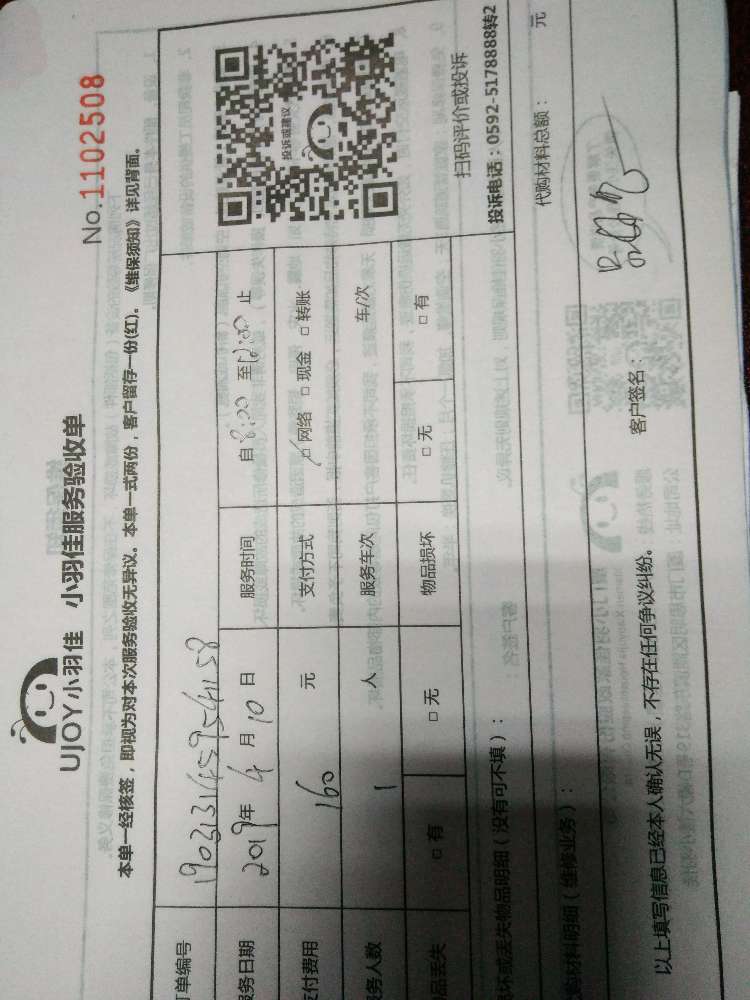 UJOY小羽佳 小羽佳服务验收单
No.1102508
本单一经核签，即视为对本次服务验收无异议。本单一式两份，客户留存一份(红)。《维保须知》详见背面。
单编号
务日期 2019年 4 月 10 日 服务时间 自 8:00 至 12:00 止
付费用 160 元 支付方式 ☑网络 □现金 □转账
务人数 1 人 服务车次 车/次
品丢失 □有 □无 物品损坏 □无 □有
投诉或建议
扫码评价或投诉
投诉电话：0592-5178888转2
坏或丢失物品明细（没有可不填）：
购材料明细（维修业务）： 代购材料总额： 元
以上填写信息已经本人确认无误，不存在任何争议纠纷。 客户签名：